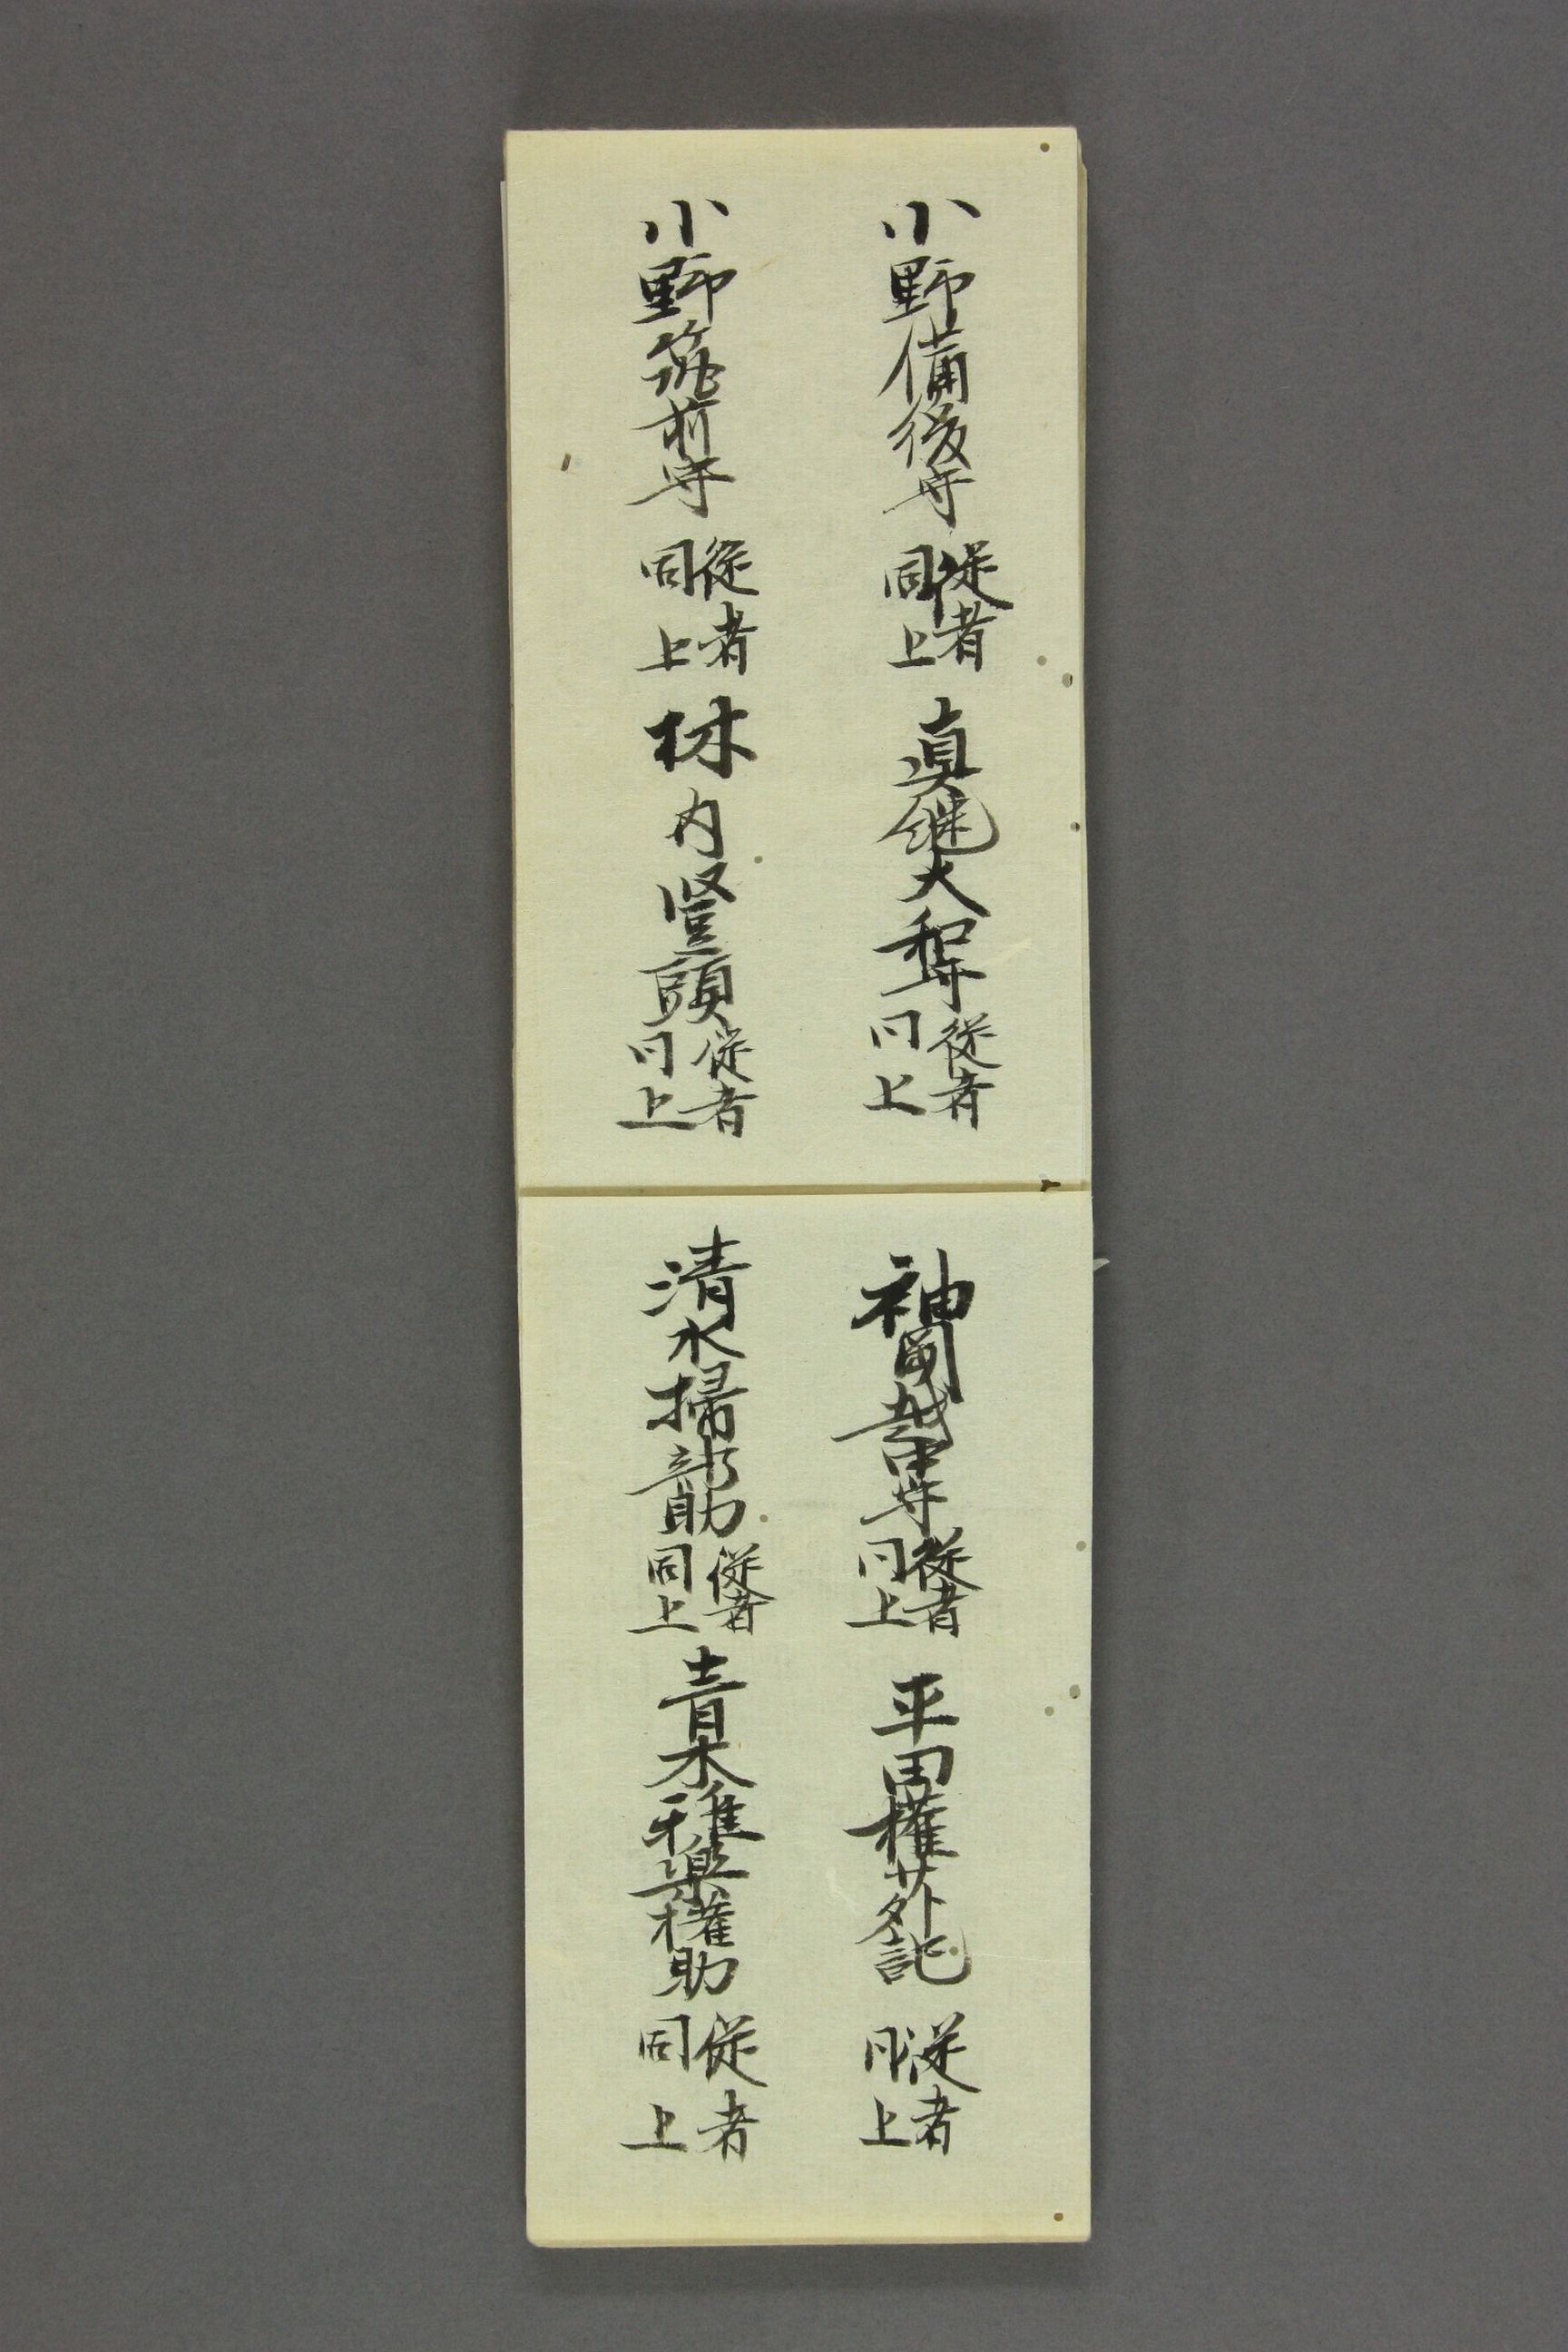 小野備後守 従者同上 真継大和守 従者同上
小野筑前守 従者同上 林内豎頭 従者同上
袖岡越中守 従者同上 平田権少外記 従者同上
清水掃部助 従者同上 青木雅楽権助 従者同上